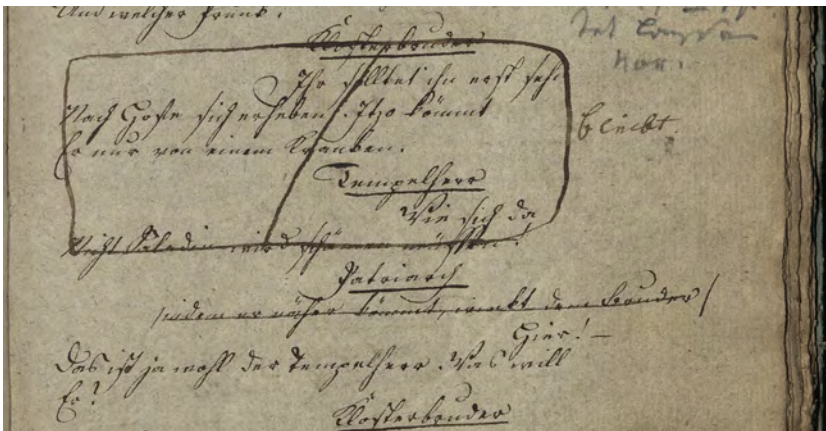 Und welcher Prunk!
Klosterbruder
Ihr solltet ihn erst sehn
Nach Hofe sich erheben. Itzo kömmt
Er nur von einem Kranken.
bleibt.
Tempelherr
Wie sich da
Nicht Saladin wird schämen müssen!
Patriarch
/indem er näher kömmt, winkt dem Bruder/
Hier! —
Das ist ja wohl der Tempelherr. Was will
Er?
Klosterbruder